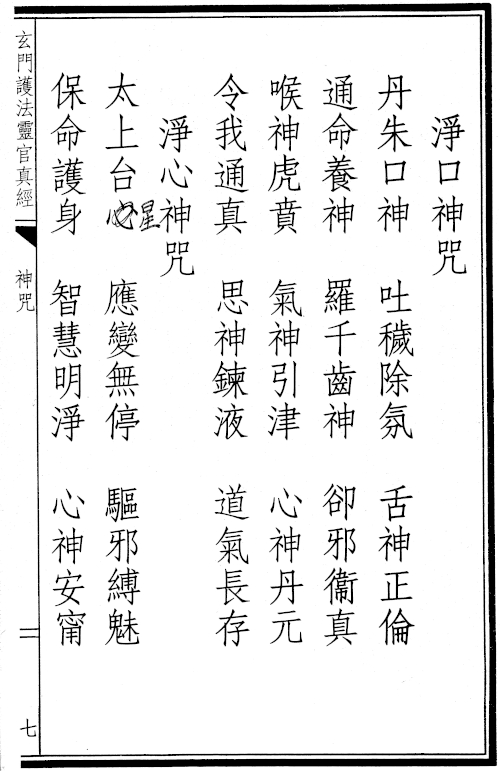 淨口神咒
丹朱口神 吐穢除氛 舌神正倫
通命養神 羅千齒神 卻邪衞真
喉神虎賁 氣神引津 心神丹元
令我通真 思神鍊液 道氣長存
淨心神咒
太上台心星 應變無停 驅邪縛魅
保命護身 智慧明淨 心神安甯
玄門護法靈官真經 神咒 七